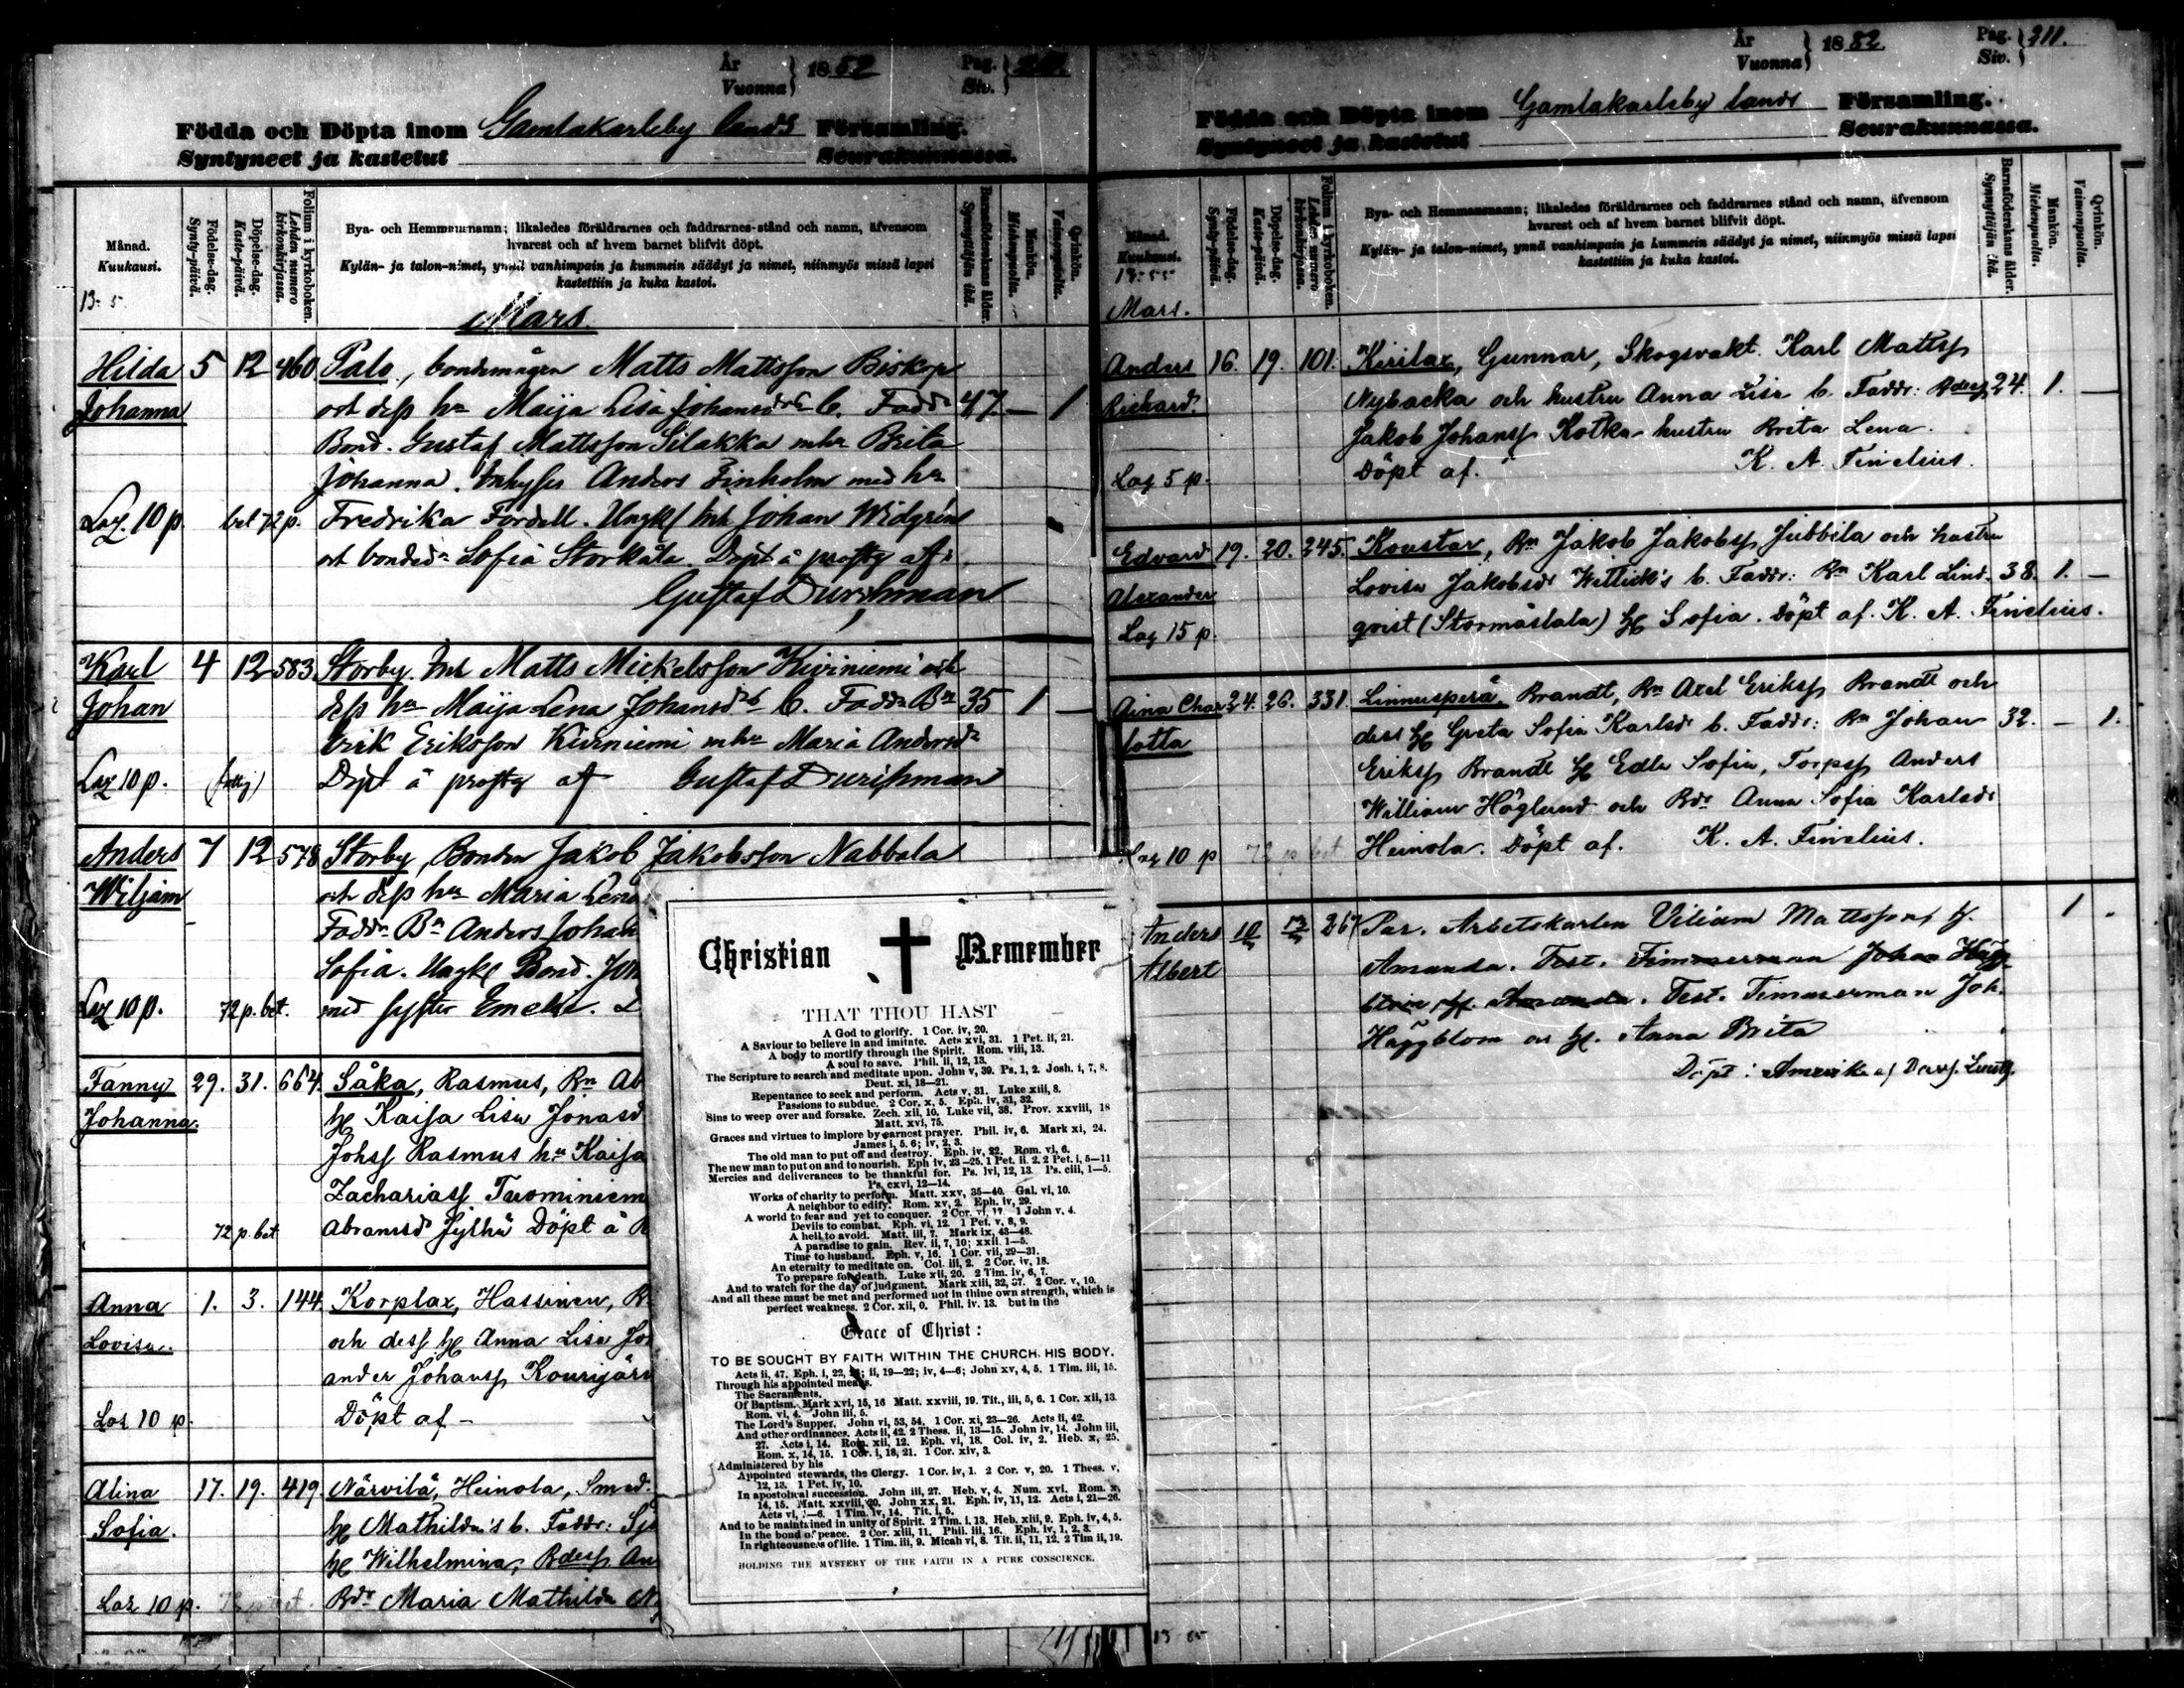 År
Vuonna } 1882 Pag.
Siv. }
Födda och Döpta inom Gamlakarleby lands Församling.
Syntyneet ja kastetut Seurakunnassa.
Månad.
Kuukausi.
Födelse-dag.
Synty-päivä.
Döpelse-dag.
Kaste-päivä.
Folium i kyrkoboken.
Lehden numero kirkonkirjassa.
Bya- och Hemmansnamn; likaledes föräldrarnes och faddrarnes stånd och namn, äfvensom
hvarest och af hvem barnet blifvit döpt.
Kylän- ja talon-nimet, ynnä vanhimpain ja kummein säädyt ja nimet, niinmyös missä lapsi
kastettiin ja kuka kastoi.
Barnaföderskans ålder.
Synnyttäjän ikä.
Mankön.
Miehenpuolia.
Qvinkön.
Vaimonpuolia.
Mars
Hilda 5 12 460 Palo, bondemågen Matts Mattsson Biskop
Johanna och dess hu Maija Lisa Johansdr b. Faddr 47 — 1
Bond. Gustaf Mattsson Silakka mhu Brita
Johanna. Inhyses Anders Finholm med hu
Laz. 10 p. bet 72 p. Fredrika Fordell. Ungk Inh Johan Widgren
och bonded. Sofia Storkåla. Döpt å prostg af
Gustaf Durchman
Karl 4 12 583 Storby. Inh Matts Mickelsson Kiviniemi och
Johan dess hu Maija Lena Johansdr b. Faddr Bn 35 1 —
Erik Eriksson Kiviniemi mhu Maria Andersdr
Laz 10 p. (fattig) Döpt å prostg af Gustaf Durchman
Anders 7 12 578 Storby, Bonden Jakob Jakobsson Nabbala
Wiljam och dess hu Maria Lena
Faddr Bn Anders Johan
Sofia. Ungk Bond.
Laz 10 p. 72 p. bet. med syster Emelie.
Fanny 29. 31. 664 Såka, Rasmus, Bn Ab
Johanna. H. Kaisa Lisa Jonasd
Johss Rasmus hu Kaisa
Zachariass Tuominiem
72 p. bet Abramsdr Jylhä Döpt å
Anna 1. 3. 144 Korplax, Hassinen, B
Lovisa. och dess H. Anna Lisa Jo
ander Johanss Kourijärv
Laz 10 p. Döpt af –
Alina 17. 19. 419 Närvilä, Heinola, Smed.
Sofia. H. Mathilda's b. Faddr:
H. Wilhelmina, Bdess An
Laz 10 p. 72 p bet. Bdr Maria Mathilda
Christian ✝ Remember
THAT THOU HAST
A God to glorify. 1 Cor. iv, 20.
A Saviour to believe in and imitate. Acts xvi, 31. 1 Pet. ii, 21.
A body to mortify through the Spirit. Rom. viii, 13.
A soul to save. Phil. ii, 12, 13.
The Scripture to search and meditate upon. John v, 39. Ps. 1, 2. Josh. i, 7, 8.
Deut. xi, 18—21.
Repentance to seek and perform. Acts v, 31. Luke xiii, 8.
Passions to subdue. 2 Cor. x, 5. Eph. iv, 31, 32.
Sins to weep over and forsake. Zech. xii, 10. Luke vii, 38. Prov. xxviii, 18
Matt. xvi, 75.
Graces and virtues to implore by earnest prayer. Phil. iv, 6. Mark xi, 24.
James i, 5. 6; iv, 2, 3.
The old man to put off and destroy. Eph. iv, 22. Rom. vi, 6.
The new man to put on and to nourish. Eph iv, 23—25. 1 Pet. ii. 2. 2 Pet. i, 5—11
Mercies and deliverances to be thankful for. Ps. lvi, 12, 13. Ps. ciii, 1—5.
Ps. cxvi, 12—14.
Works of charity to perform. Matt. xxv, 35—40. Gal. vi, 10.
A neighbor to edify. Rom. xv, 2. Eph. iv, 29.
A world to fear and yet to conquer. 2 Cor. vi, 17. 1 John v. 4.
Devils to combat. Eph. vi, 12. 1 Pet. v, 8, 9.
A hell to avoid. Matt. iii, 7. Mark ix, 43—48.
A paradise to gain. Rev. ii, 7, 10; xxii. 1—5.
Time to husband. Eph. v, 16. 1 Cor. vii, 29—31.
An eternity to meditate on. Col. iii, 2. 2 Cor. iv, 18.
To prepare for death. Luke xii, 20. 2 Tim. iv, 6, 7.
And to watch for the day of judgment. Mark xiii, 32, 37. 2 Cor. v, 10.
And all these must be met and performed not in thine own strength, which is
perfect weakness. 2 Cor. xii, 0. Phil. iv. 13. but in the
Grace of Christ:
TO BE SOUGHT BY FAITH WITHIN THE CHURCH, HIS BODY.
Acts ii, 47. Eph. i, 22, 23; ii, 19—22; iv, 4—6; John xv, 4, 5. 1 Tim. iii, 15.
Through his appointed means.
The Sacraments.
Of Baptism. Mark xvi, 15, 16 Matt. xxviii, 19. Tit., iii, 5, 6. 1 Cor. xii, 13.
Rom. vi, 4. John iii, 5.
The Lord's Supper. John vi, 53, 54. 1 Cor. xi, 23—26. Acts ii, 42.
And other ordinances. Acts ii, 42. 2 Thess. ii, 13—15. John iv, 14. John iii,
27. Acts i, 14. Rom. xii, 12. Eph. vi, 18. Col. iv, 2. Heb. x, 25.
Rom. x, 14, 15. 1 Cor. i, 18, 21. 1 Cor. xiv, 3.
Administered by his
Appointed stewards, the Clergy. 1 Cor. iv, 1. 2 Cor. v, 20. 1 Thess. v,
12, 13. 1 Pet. iv, 10.
In apostolical succession. John iii, 27. Heb. v, 4. Num. xvi. Rom. x,
14, 15. Matt. xxviii, 20. John xx, 21. Eph. iv, 11, 12. Acts i, 21—26.
Acts vi, 1—6. 1 Tim. iv, 14. Tit. i, 5.
And to be maintained in unity of Spirit. 2 Tim. i, 13. Heb. xiii, 9. Eph. iv, 4, 5.
In the bond of peace. 2 Cor. xiii, 11. Phil. iii, 16. Eph. iv, 1, 2, 3.
In righteousness of life. 1 Tim. iii, 9. Micah vi, 8. Tit. ii, 11, 12. 2 Tim ii, 19.
HOLDING THE MYSTERY OF THE FAITH IN A PURE CONSCIENCE.
År
Vuonna } 1882 Pag.
Siv. } 211.
Födda och Döpta inom Gamlakarleby lands Församling.
Syntyneet ja kastetut Seurakunnassa.
Månad.
Kuukausi.
Födelse-dag.
Synty-päivä.
Döpelse-dag.
Kaste-päivä.
Folium i kyrkoboken.
Lehden numero kirkonkirjassa.
Bya- och Hemmansnamn; likaledes föräldrarnes och faddrarnes stånd och namn, äfvensom
hvarest och af hvem barnet blifvit döpt.
Kylän- ja talon-nimet, ynnä vanhimpain ja kummein säädyt ja nimet, niinmyös missä lapsi
kastettiin ja kuka kastoi.
Barnaföderskans ålder.
Synnyttäjän ikä.
Mankön.
Miehenpuolia.
Qvinkön.
Vaimonpuolia.
Mars.
Anders 16. 19. 101. Kirilax, Gunnar, Skogsvakt. Karl Mattss
Richard. Nybacka och hustru Anna Lisa b. Faddr: Bdess 24. 1. —
Jakob Johanss Kotka hustru Brita Lena.
Laz 5 p. Döpt af. K. A. Finelius.
Edvard 19. 20. 245. Koustar, Bn Jakob Jakobss Jubbila och hustru
Alexander Lovisa Jakobsdr Wittick's b. Faddr: Bn Karl Lind- 38. 1. —
Laz 15 p. qvist (Stormåslala) H. Sofia. Döpt af. K. A. Finelius.
Aina Char 24. 26. 331. Linnusperä, Brandt, Bn Axel Erikss Brandt och
lotta dess H. Greta Sofia Karlsdr b. Faddr: Bn Johan 32. — 1.
Erikss Brandt H. Edla Sofia, Torpss Anders
William Höglund och Bdr Anna Sofia Karlsdr
Laz 10 p 72 p bet Heinola. Döpt af. K. A. Finelius.
Anders 10 12 267 Par. Arbetskarlen Viliam Mattsson, H. 1
Albert Amanda. Test. Timmerman Johan Hägg-
H. Amanda. Test. Timmerman Joh.
Häggblom o H. Anna Brita
Döpt i Amerika af